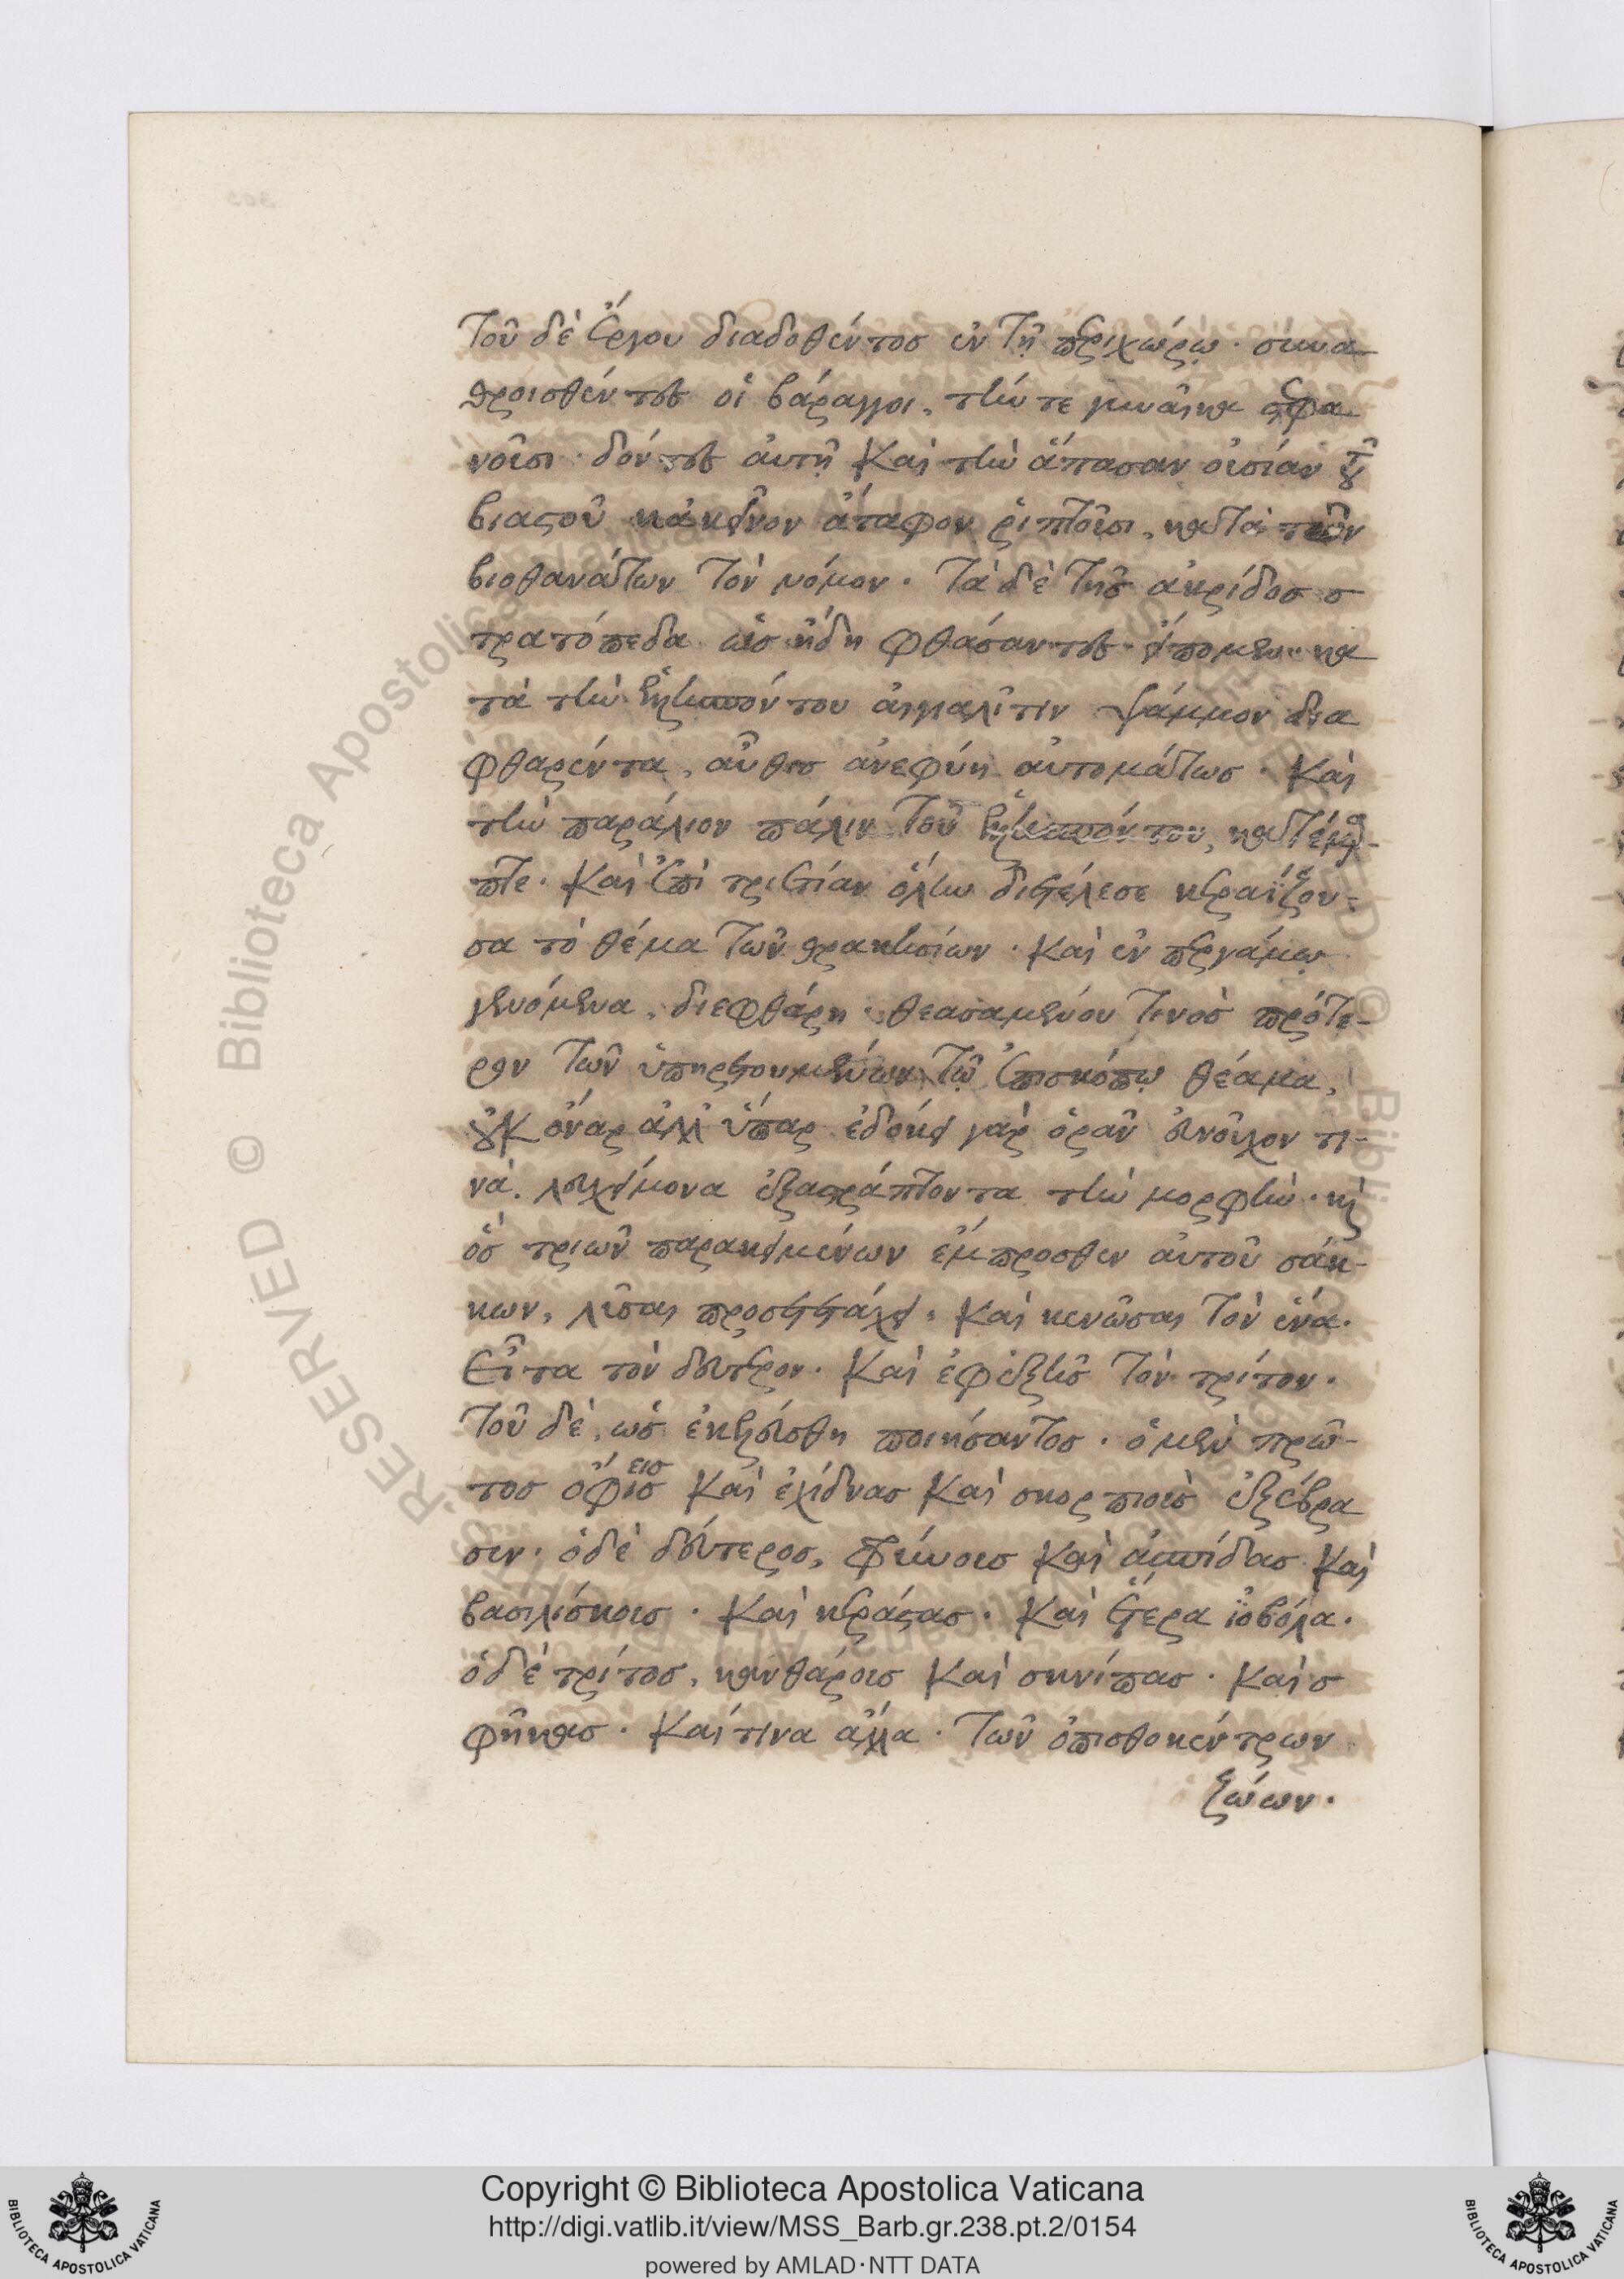 Τοῦ δὲ ἔργου διαδοθέντος ἐν τῇ περιχώρῳ· συνα-
θροισθέντες οἱ βάραγγοι, τήν τε γυναῖκα στεφα-
νοῦσι· δόντες αὐτῇ καὶ τὴν ἅπασαν οὐσίαν τοῦ
βιαστοῦ κἀκεῖνον ἄταφον ῥιπτοῦσι, κατὰ τῶν
βιοθανάτων τὸν νόμον. Τὰ δὲ τῆς ἀκρίδος σ
τρατόπεδα ὡς ἤδη φθάσαντες εἴπομεν κα
τὰ τὴν Ἑλλησπόντου αἰγιαλῖτιν ψάμμον δια
φθαρέντα, αὖθις ἀνεφύη αὐτομάτως. Καὶ
τὴν παράλιον πάλιν τοῦ Ἑλλησπόντου, κατέκυ-
πτε. Καὶ ἐπὶ τριετίαν ὅλην διετέλεσε κεραΐζου-
σα τὸ θέμα τῶν θρακησίων. Καὶ ἐν περγάμῳ
γενόμενα, διεφθάρη· θεασαμένου τινὸς πρότε-
ρον τῶν ὑπηρετουμένων τῷ ἐπισκόπῳ θέαμα,
οὐκ ὄναρ ἀλλ' ὕπαρ ἐδόκει γὰρ ὁρᾶν εὐνοῦχον τι-
νὰ. λευχείμονα ἐξαστράπτοντα τὴν μορφὴν. καὶ
ὃς τριῶν παρακειμένων ἔμπροσθεν αὐτοῦ σάκ-
κων, λῦσαι προσετέταχει, καὶ κενῶσαι τὸν ἕνα.
Εἶτα τὸν δεύτερον. Καὶ ἐφεξῆς τὸν τρίτον.
Τοῦ δὲ, ὡς ἐκελεύσθη ποιήσαντος. ὁ μὲν πρῶ-
τος ὄφεις καὶ ἐχίδνας καὶ σκορπιοὺς ἐξέβρα
σεν. ὁ δὲ δεύτερος, φρύνους καὶ ἀσπίδας καὶ
βασιλίσκους. Καὶ κεράστας. Καὶ ἕτερα ἰοβόλα.
ὁ δὲ τρίτος, κανθάρους καὶ σκνίπας. Καὶ σ
φῆκας. Καί τινα ἄλλα. Τῶν ὀπισθοκέντρων
ζώων.
Copyright © Biblioteca Apostolica Vaticana
http://digi.vatlib.it/view/MSS_Barb.gr.238.pt.2/0154
powered by AMLAD·NTT DATA